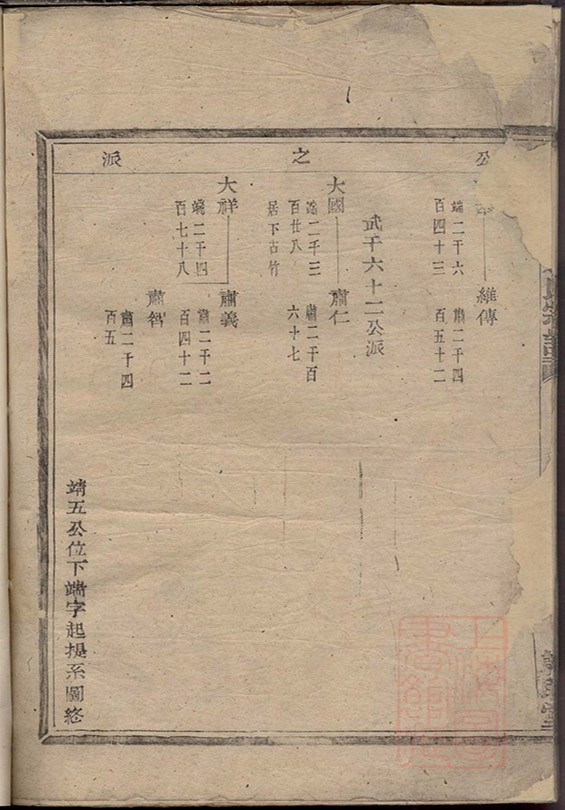 公之派
維傳
端二千六
百四十三
肅二千四
百五十二
武千六十二公派
大國
肅仁
端二千三
百廿八
居下古竹
肅二千百
六十七
大祥
肅義
端二千四
百七十八
肅二千二
百四十二
肅智
肅二千四
百五
靖五公位下端字起提系圖終